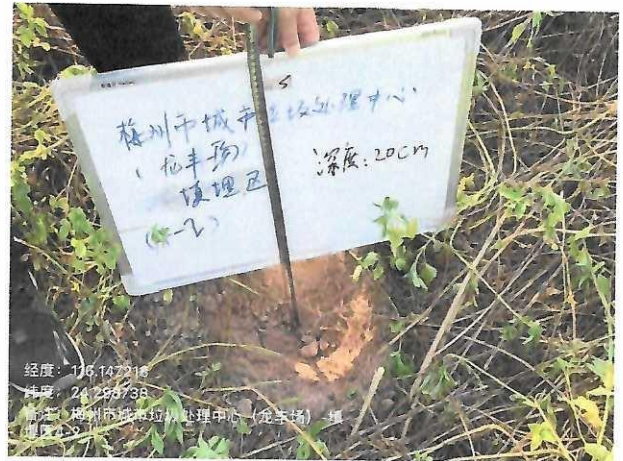 S
梅州市城市垃圾处理中心
(龙丰场)
深度:20cm
填埋区
经度:116.147216
纬度:24.298738
备注:梅州市城市垃圾处理中心(龙丰场)-填
埋区4-2